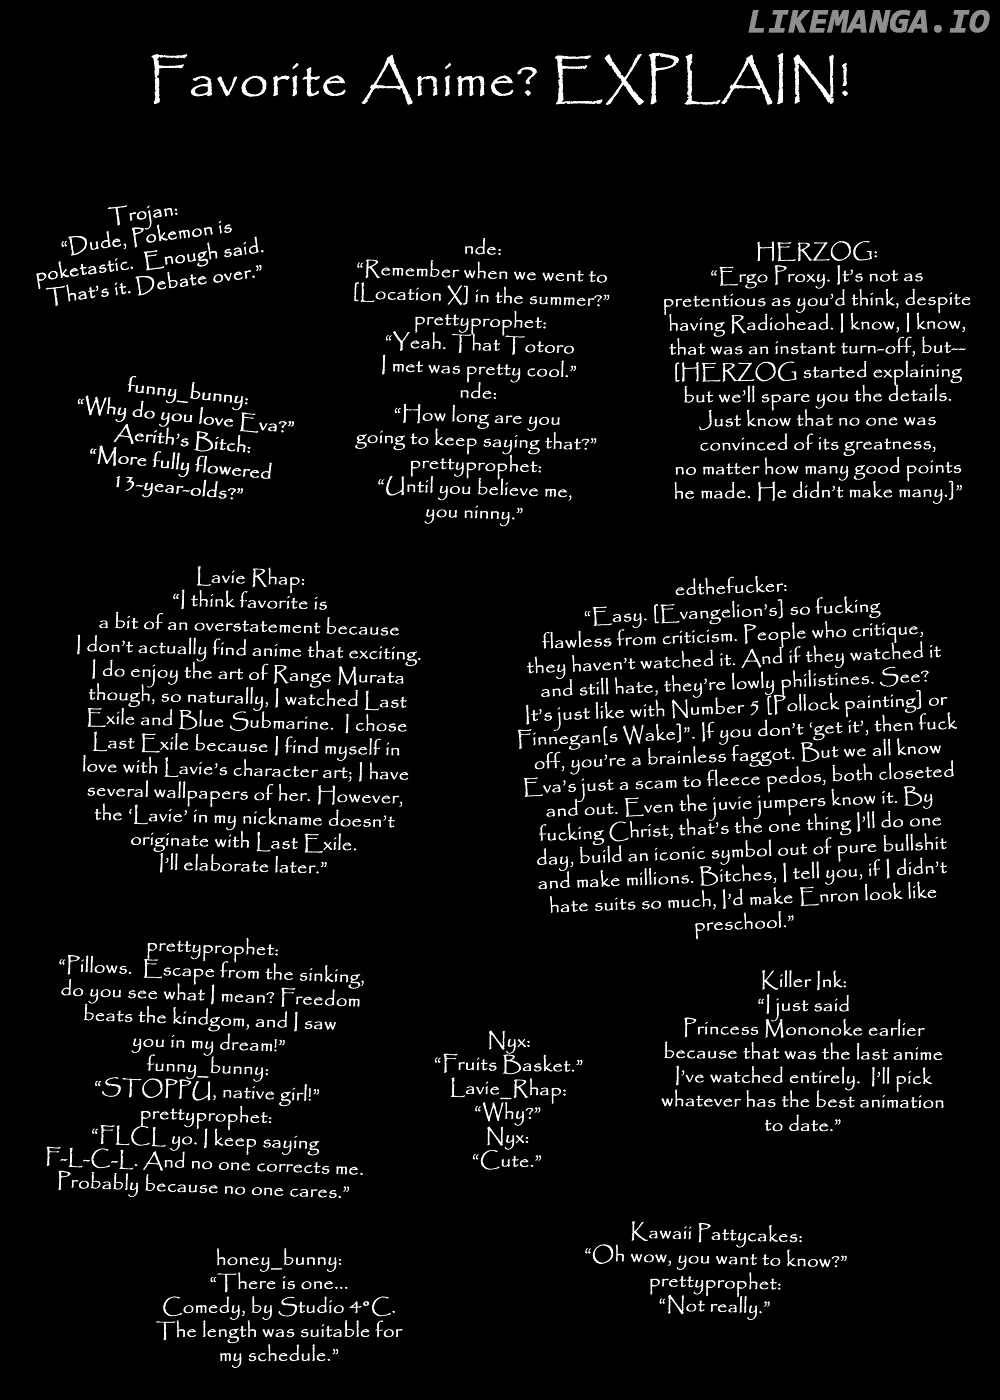 LIKEMANGA.IO
Favorite Anime? EXPLAIN!
Trojan:
“Dude, Pokemon is
poketastic. Enough said.
That’s it. Debate over.”
nde:
“Remember when we went to
[Location X] in the summer?”
prettyprophet:
“Yeah. That Totoro
I met was pretty cool.”
nde:
“How long are you
going to keep saying that?”
prettyprophet:
“Until you believe me,
you ninny.”
HERZOG:
“Ergo Proxy. It’s not as
pretentious as you’d think, despite
having Radiohead. I know, I know,
that was an instant turn-off, but--
[HERZOG started explaining
but we’ll spare you the details.
Just know that no one was
convinced of its greatness,
no matter how many good points
he made. He didn’t make many.]”
funny_bunny:
“Why do you love Eva?”
Aerith’s Bitch:
“More fully flowered
13-year-olds?”
Lavie Rhap:
“I think favorite is
a bit of an overstatement because
I don’t actually find anime that exciting.
I do enjoy the art of Range Murata
though, so naturally, I watched Last
Exile and Blue Submarine. I chose
Last Exile because I find myself in
love with Lavie’s character art; I have
several wallpapers of her. However,
the ‘Lavie’ in my nickname doesn’t
originate with Last Exile.
I’ll elaborate later.”
edthefucker:
“Easy. [Evangelion’s] so fucking
flawless from criticism. People who critique,
they haven’t watched it. And if they watched it
and still hate, they’re lowly philistines. See?
It’s just like with Number 5 [Pollock painting] or
Finnegan[s Wake]”. If you don’t ‘get it’, then fuck
off, you’re a brainless faggot. But we all know
Eva’s just a scam to fleece pedos, both closeted
and out. Even the juvie jumpers know it. By
fucking Christ, that’s the one thing I’ll do one
day, build an iconic symbol out of pure bullshit
and make millions. Bitches, I tell you, if I didn’t
hate suits so much, I’d make Enron look like
preschool.”
prettyprophet:
“Pillows. Escape from the sinking,
do you see what I mean? Freedom
beats the kindgom, and I saw
you in my dream!”
funny_bunny:
“STOPPU, native girl!”
prettyprophet:
“FLCL yo. I keep saying
F-L-C-L. And no one corrects me.
Probably because no one cares.”
Nyx:
“Fruits Basket.”
Lavie_Rhap:
“Why?”
Nyx:
“Cute.”
Killer Ink:
“I just said
Princess Mononoke earlier
because that was the last anime
I’ve watched entirely. I’ll pick
whatever has the best animation
to date.”
honey_bunny:
“There is one...
Comedy, by Studio 4°C.
The length was suitable for
my schedule.”
Kawaii Pattycakes:
“Oh wow, you want to know?”
prettyprophet:
“Not really.”